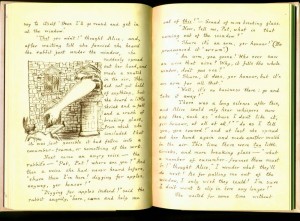 ing to itself "then I'll go round and get in
at the window."
"That you won't!" thought Alice, and,
after waiting till she fancied she heard
the rabbit just under the window, she
suddenly spread
out her hand, and
made a snatch
in the air. She
did not get hold
of anything, but
she heard a little
shriek and a fall
and a crash of
breaking glass,
from which she
concluded that
it was just possible it had fallen into a
cucumber-frame, or something of the sort.
Next came an angry voice — the
rabbit's — "Pat, Pat! where are you?" And
then a voice she had never heard before,
"shure then I'm here! digging for apples,
anyway, yer honour!"
"Digging for apples indeed!" said the
rabbit angrily, "here, come and help me
out of this!" — Sound of more breaking glass.
"Now, tell me, Pat, what is that
coming out of the window?"
"Shure it's an arm, yer honour!" (He
pronounced it "arrum".)
"An arm, you goose! Who ever saw
an arm that size? Why, it fills the whole
window, don't you see?"
"Shure, it does, yer honour, but it's an
arm for all that."
"Well, it's no business there: go and
take it away!"
There was a long silence after this,
and Alice could only hear whispers now
and then, such as "shure I don't like it,
yer honour, at all at all!" "do as I tell
you, you coward!" and at last she spread
out her hand again and made another snatch
in the air. This time there were two little
shrieks, and more breaking glass — "what
a number of cucumber-frames there must
be!" thought Alice, "I wonder what they'll
do next! As for pulling me out of the
window, I only wish they could! I'm sure
I don't want to stop in here any longer!"
She waited for some time without